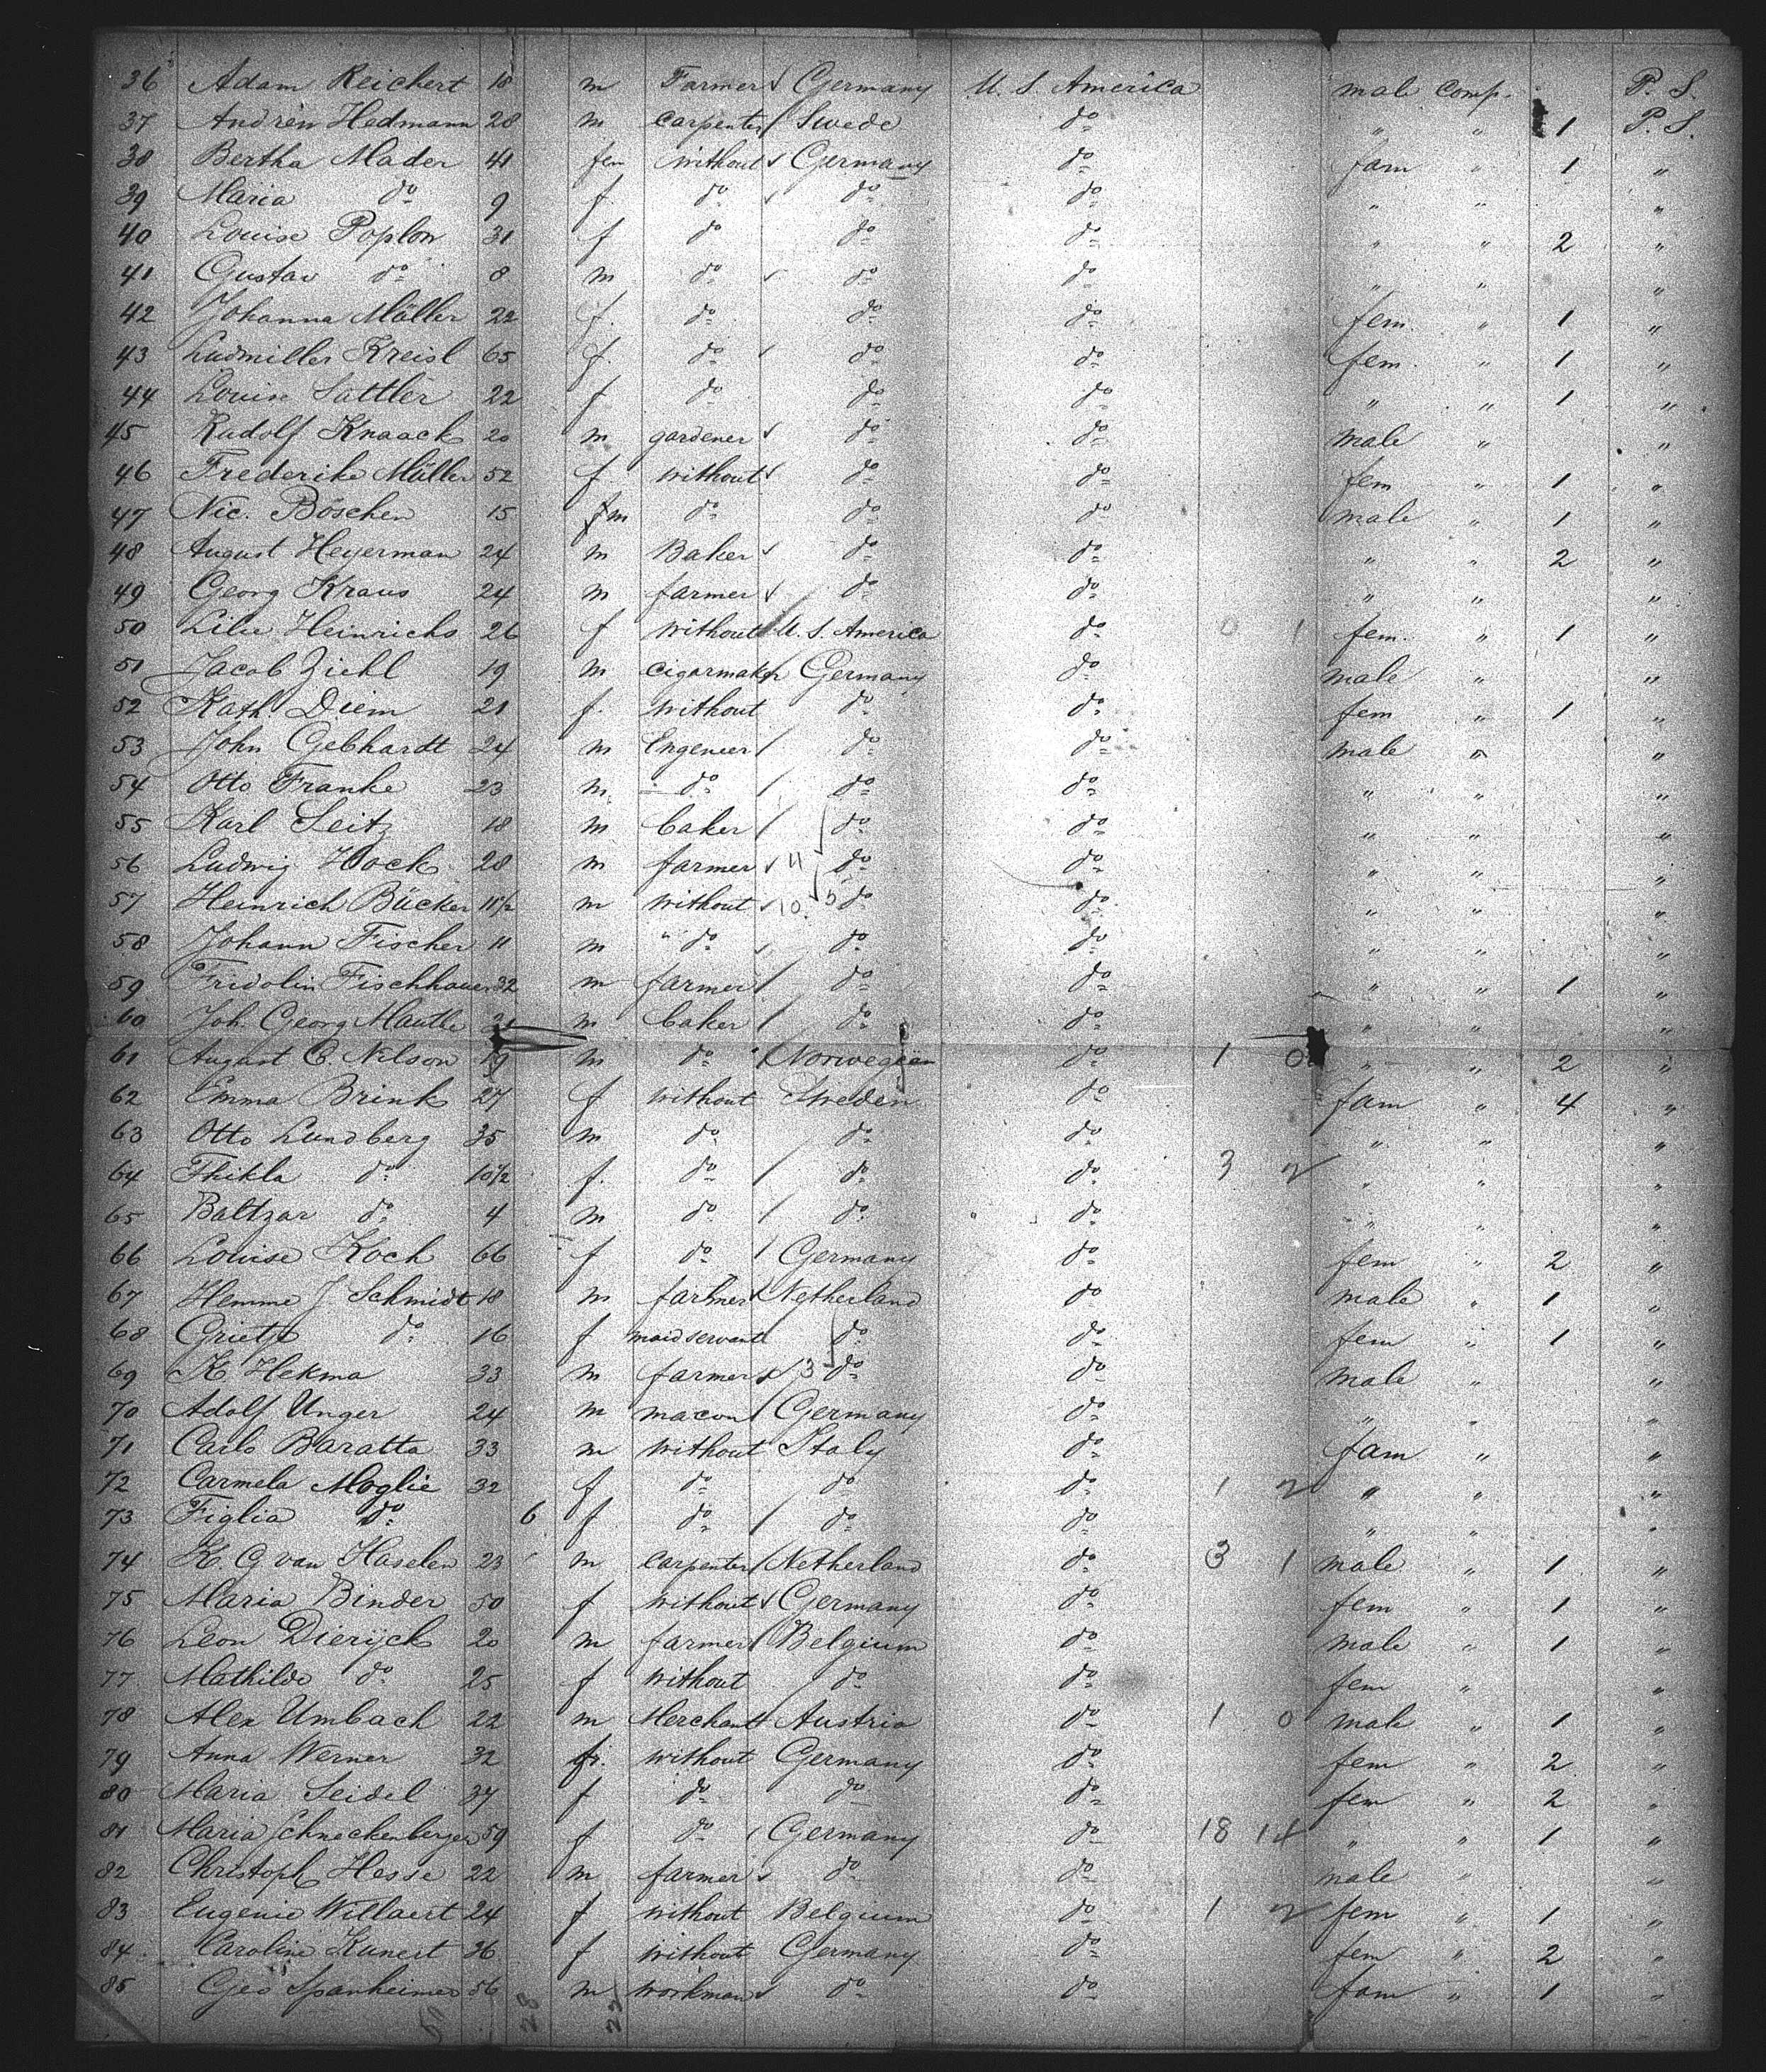 36 Adam Reichert 18 m Farmer Germany U. S. America male comp. P. S.
37 Andrew Hedmann 28 m carpenter Swede do " " 1 P. S.
38 Bertha Mader 41 fem without Germany do fam " 1 "
39 Maria do 9 f. do do do " " "
40 Louise Poplow 31 f do do do " " 2 "
41 Gustav do 8 m do do do " " "
42 Johanna Müller 22 f. do do do fem. " 1 "
43 Ludmiller Kreisl 65 f. do do do fem. " 1 "
44 Louise Sattler 22 f do do do " " 1 "
45 Rudolf Knaack 20 m gardener do do male " "
46 Frederike Müller 52 f. without do do fem " 1 "
47 Nic. Böschen 15 m do do do male " 1 "
48 August Heyerman 24 m Baker do do " " 2 "
49 Georg Kraus 24 m farmer do do " " "
50 Lilie Heinrichs 26 f without U. S. America do 0 1 fem. " 1 "
51 Jacob Ziehl 19 m cigarmaker Germany do male " "
52 Kath. Diem 21 f. without do do fem " 1 "
53 John Gebhardt 24 m Engeneer do do male " "
54 Otto Franke 23 m. do do do " " "
55 Karl Seitz 18 m baker do do " " "
56 Ludwig Hock 28 m farmer 11 do do " " "
57 Heinrich Bücker 11½ m without 10. 5 do do " " "
58 Johann Fischer 11 m " do do do " " "
59 Fridolin Fischhauer 32 m farmer do do " " 1 "
60 Joh. Georg Mautle m baker do do " " "
61 August C. Nilson 19 m do Norwegian do 1 0 " " 2 "
62 Emma Brink 27 f without Sweden do fam " 4 "
63 Otto Lundberg 35 m do do do " " "
64 Thikla do 10½ f. do do do 3 2 " " "
65 Baltzar do 4 m do do do " " "
66 Louise Koch 66 f do Germany do fem " 2 "
67 Hemme J. Schmidt 18 m farmer Netherland do male " 1 "
68 Grietje do 16 f maidservant do do fem " 1 "
69 K. Hekma 33 m farmer 3 do do male " "
70 Adolf Unger 24 m macon Germany do " " "
71 Carlo Baratta 33 m without Italy do fam " "
72 Carmela Moglie 32 f do do do 1 2 " " "
73 Figlia do 6 f do do do " " "
74 K. G van Haselen 23 m carpenter Netherland do 3 1 male " 1 "
75 Maria Binder 50 f without Germany do fem " 1 "
76 Leon Dierijck 20 m farmer Belgium do male " 1 "
77 Mathilde do 25 f without do do fem " "
78 Alex Umbach 22 m Merchant Austria do 1 0 male " 1 "
79 Anna Werner 32 f. without Germany do fem " 2 "
80 Maria Seidel 37 f do do do fem " 2 "
81 Maria Schneckenberger 59 f do Germany do 18 14 " " 1 "
82 Christoph Hesse 22 m farmer do do male " "
83 Eugenie Willaert 24 f without Belgium do 1 2 fem " 1 "
84 Caroline Kunert 36 f without Germany do fem " 2 "
85 Geo Spanheimer 56 m workman do do fam " 1 "
28 22